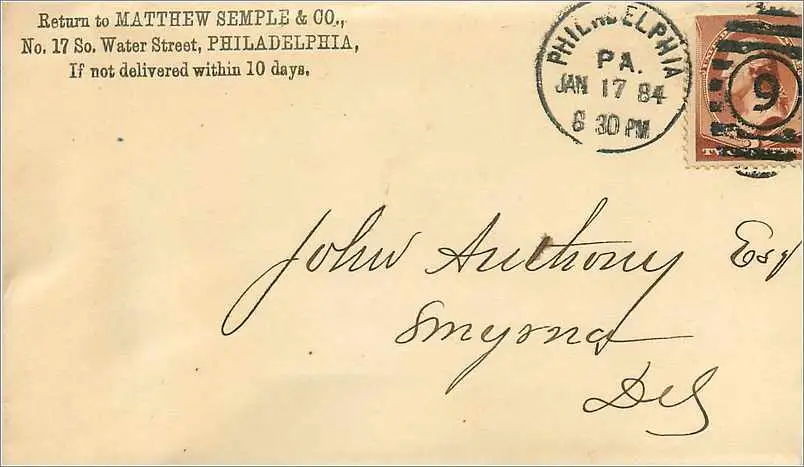 Return to MATTHEW SEMPLE & CO.,
No. 17 So. Water Street, PHILADELPHIA,
If not delivered within 10 days.
PHILADELPHIA
PA.
JAN 17 84
8 30 PM
9
John Anthony Esq
Smyrna
Del